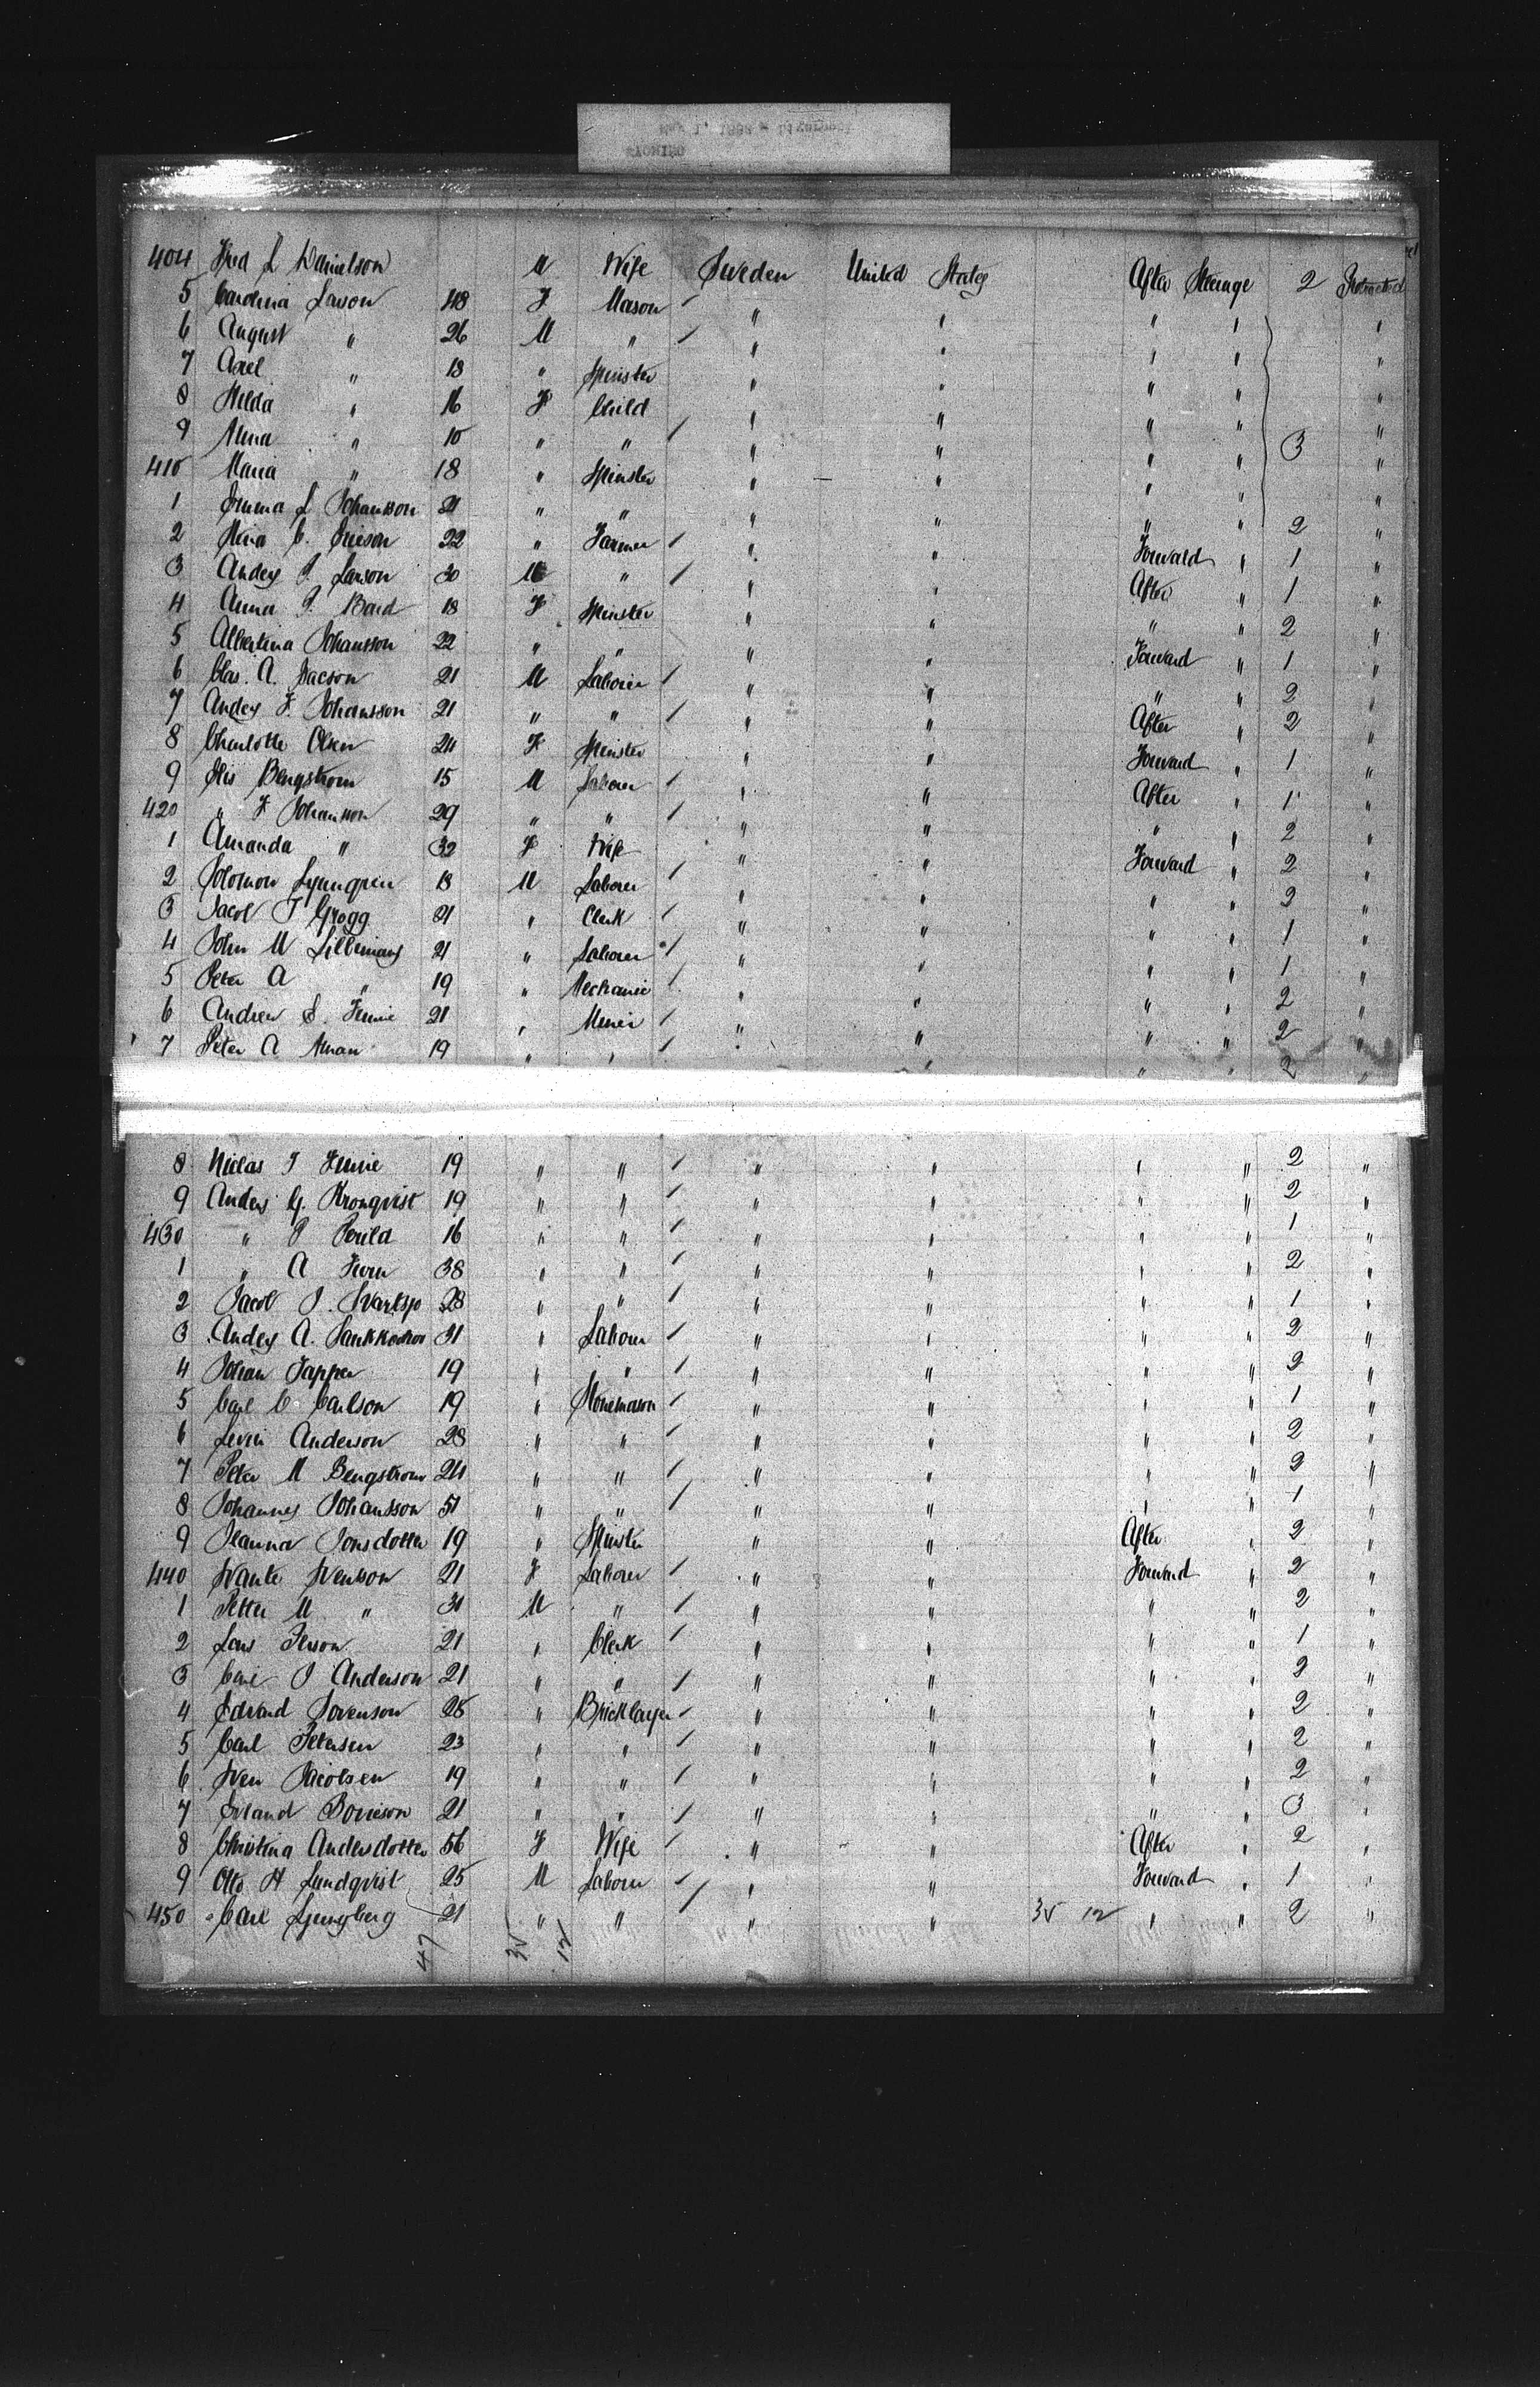 404 Fred L Danielson M Wife Sweden United States After Steerage 2 Protracted
5 Carolina Lawon 48 F Mason " " " " "
6 August " 26 M " " " " " "
7 Axel " 18 " Spinster " " " " "
8 Hilda " 16 F Child " " " " "
9 Alma " 10 " " " " " " 3 "
410 Maria " 18 " Spinster " " " " "
1 Emma L Johansson 21 " " " " " " 2 "
2 Nina C. Ericson 22 " Farmer " " Forward " 1 "
3 Anders P. Larson 30 M " " " After " 1 "
4 Anna P. Bard 18 F Spinster " " " " 2 "
5 Albertina Johansson 22 " " " " Forward " 1 "
6 Clas. A. Isacson 21 M Laborer " " " " 2 "
7 Anders F. Johansson 21 " " " " After " 2 "
8 Charlotte Olsen 24 F Spinster " " Forward " 1 "
9 Bengstrom 15 M Laborer " " After " 1 "
420 " F Johansson 29 " " " " " " 2 "
1 Amanda " 32 F Wife " " Forward " 2 "
2 Solomon Ljungren 18 M Laborer " " " " 2 "
3 Jacob T Grogg 21 " Clerk " " " " 1 "
4 John M Lillemans 21 " Laborer " " " " 1 "
5 Peter A " 19 " Mechanic " " " " 2 "
6 Andrew E. 21 " Miner " " " " 2 "
7 Peter A Aman 19 " " " " " " 2 "
8 Niclas T 19 " " " " " " 2 "
9 Anders G. Kronqvist 19 " " " " " " 2 "
430 " P 16 " " " " " " 1 "
1 " A 38 " " " " " " 2 "
2 Jacob J. 28 " " " " " " 1 "
3 Anders A. 31 " Laborer " " " " 2 "
4 Johan Tapper 19 " " " " " " 2 "
5 Carl C Carlson 19 " Stonemason " " " " 1 "
6 Levin Anderson 28 " " " " " " 2 "
7 Peter M Bengstrom 24 " " " " " " 2 "
8 Johannes Johansson 51 " " " " " " 1 "
9 Jonsdotter 19 " Spinster " " After " 2 "
440 Svante Svenson 21 F Laborer " " Forward " 2 "
1 Petter M " 31 M " " " " " 2 "
2 Lars Person 21 " Clerk " " " " 1 "
3 Carl J Anderson 21 " " " " " " 2 "
4 Edvard Sorenson 25 " Bricklayer " " " " 2 "
5 Carl Petersen 23 " " " " " " 2 "
6 Sven Jacobsen 19 " " " " " " 2 "
7 Erland 21 " " " " " " 3 "
8 Christina Andersdotter 56 F Wife " " After " 2 "
9 Otto H Lundqvist 25 M Laborer " " Forward " 1 "
450 Carl Ljungberg 21 " " " " 35 12 " " 2 "
47 35 12